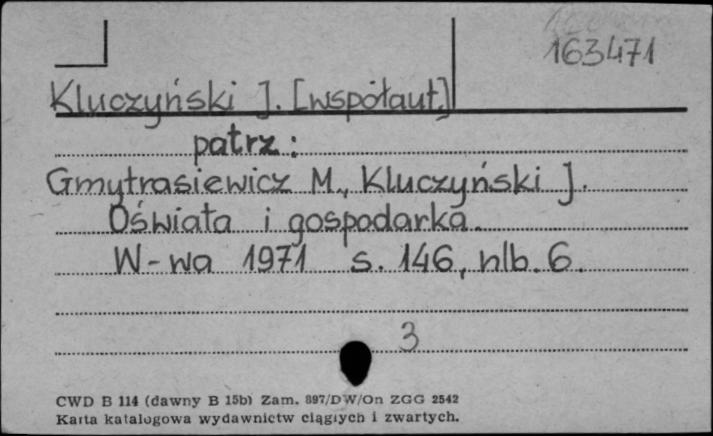 163471
Kluczyński J. [współaut.]
patrz:
Gmytrasiewicz M., Kluczyński J.
Oświata i gospodarka.
W-wa 1971 s. 146, nlb. 6.
3
CWD B 114 (dawny B 15b) Zam. 897/DW/On ZGG 2542
Karta katalogowa wydawnictw ciągłych i zwartych.